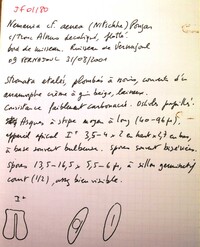 JF01180
Nemania cf. aenea (Nitschke) Pouzar
s/tronc Alnus decortiqué, flotté.
bord de ruisseau. Ruisseau de Vernajoul
09 VERNAJOUL 31/08/2001
Stromata étalés, plombé à noirs, couverts d'un
anamorphe crème à gris beige, laineux.
Consistance faiblement carbonacé. Ostioles papillés.
Asques à stipe moyen à long (40-96 µ),
appareil apical I+ 3,5-4 x 2 en haut x 3 en bas,
à base souvent bulbeuse. Spores souvent bisériées.
Spores 13,5-16,5 x 5,5-6 µ, à sillon germinatif
court (1/2), bien visible.
I+